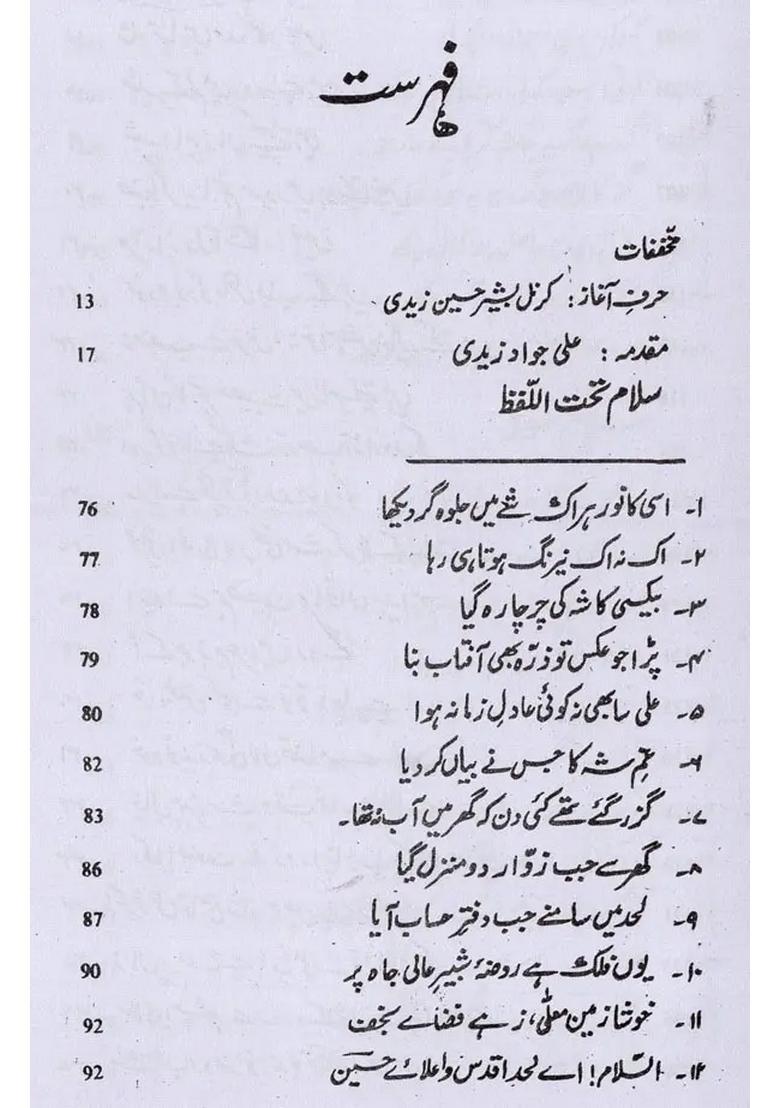 فہرست
مخففات
حرفِ آغاز: کرنل بشیر حسین زیدی 13
مقدمہ: علی جواد زیدی 17
سلام تحت اللّفظ
۱- اسی کا نور ہر اک شے میں جلوہ گر دیکھا 76
۲- اک نہ اک نیرنگ ہوتا ہی رہا 77
۳- بیکسی کا شہ کی چرچا رہ گیا 78
۴- پڑا جو عکس تو ذرّہ بھی آفتاب بنا 79
۵- علی سا بھی نہ کوئی عادلِ زمانہ ہوا 80
۶- غمِ شہ کا جس نے بیاں کر دیا 82
۷- گزر گئے تھے کئی دن کہ گھر میں آب نہ تھا۔ 83
۸- گھر سے جب زوّار دو منزل گیا 86
۹- لحد میں سامنے جب دفترِ حساب آیا 87
۱۰- یوں فلک ہے روضۂ شبیرِ عالی جاہ پر 90
۱۱- خوشا زمینِ معلّٰی، زہے فضائے نجف 92
۱۲- السّلام! اے لحدِ اقدس و اعلائے حسینؑ 92